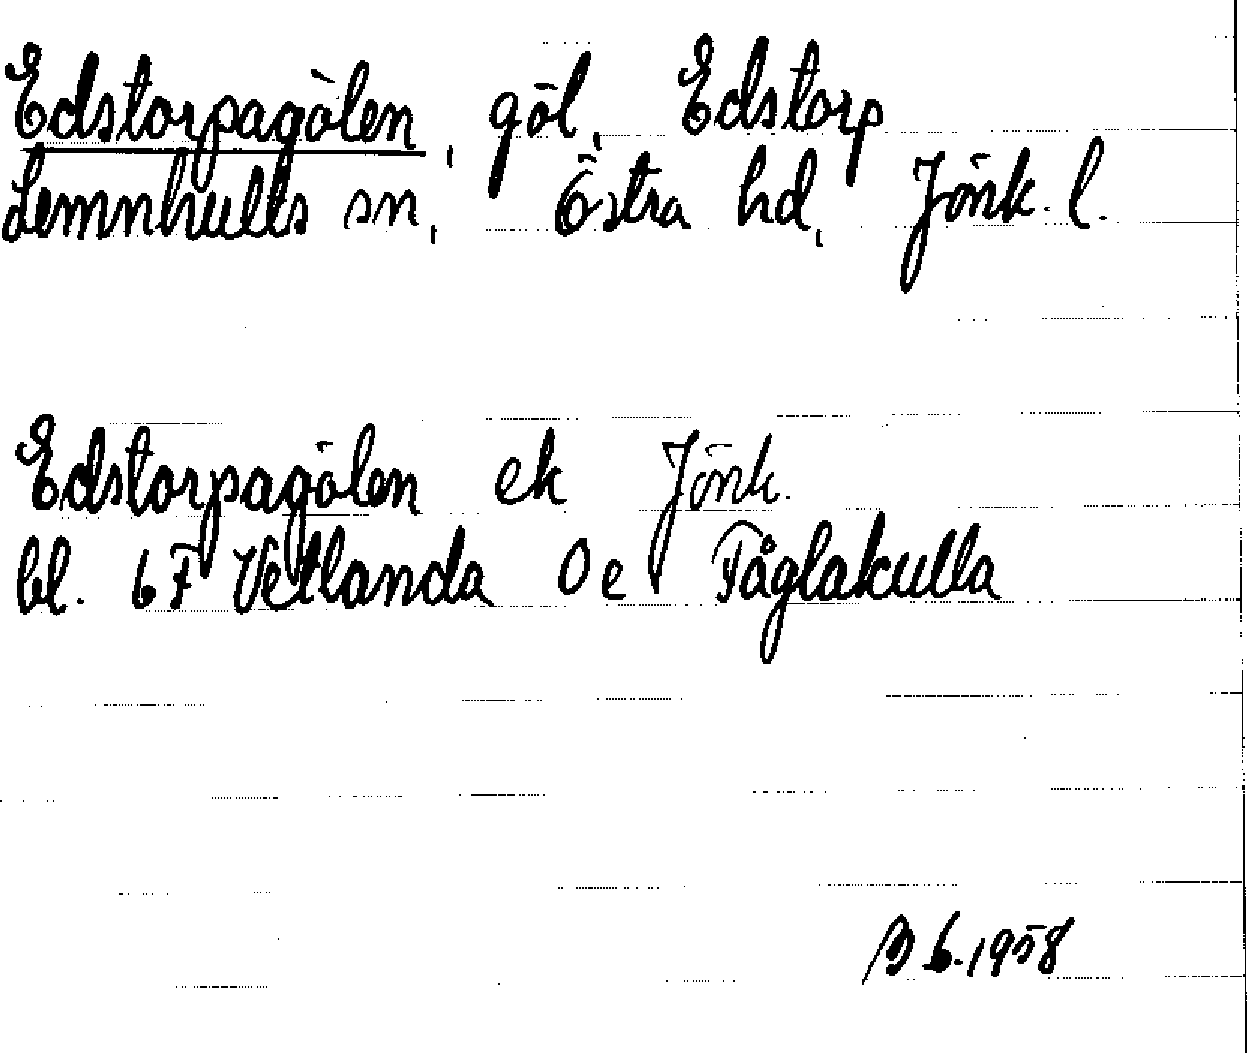 Edstorpagölen, göl, Edstorp
Lemnhults sn, Östra hd, Jönk. l.
Edstorpagölen ek Jönk.
bl. 6F Vetlanda 0 e Fåglakulla
B b. 1958